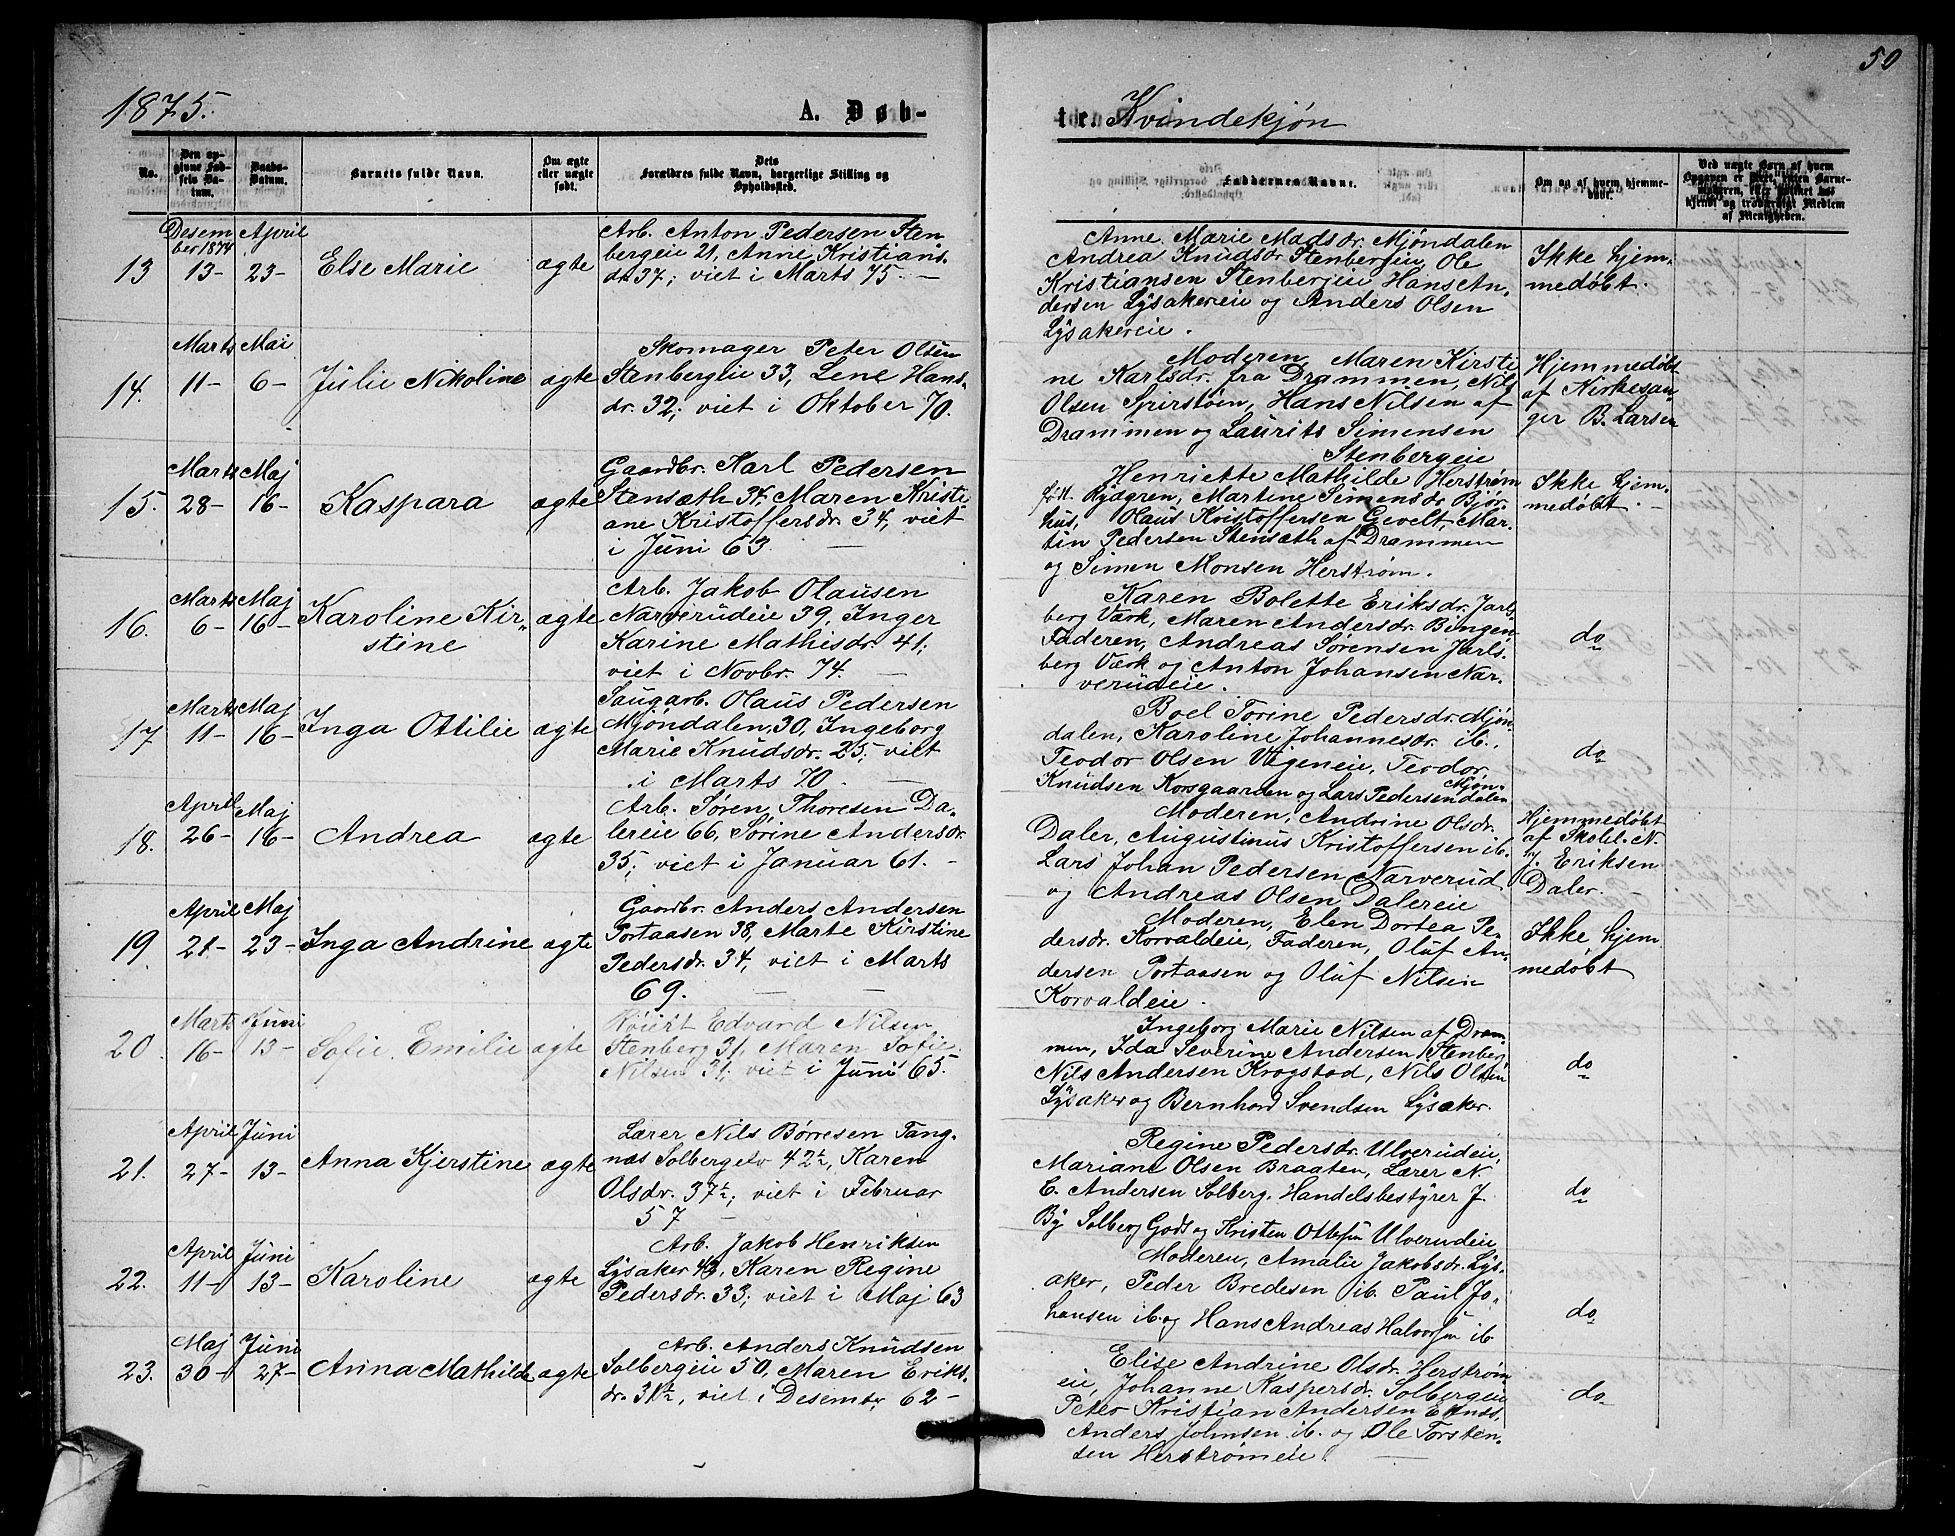 50
1875.
A. Døb-
te. Kvindekjøn
No.
Den op-
givne Fød-
sels Da-
tum.
Daabs-
Datum.
Barnets fulde Navn.
Om ægte
eller uægte
født.
Dets
Forældres fulde Navn, borgerlige Stilling og
Opholdssted.
Faddernes Navne.
Om og af hvem hjemme-
døbt.
Ved uægte Barn af hvem
Opgaven er skeet, enten Barne-
moderen, eller Pastket hos
kjendt og troværdigt Medlem
af Menigheden.
13
Desem
ber 1874
13-
April
23-
Else Marie
ægte
Arb. Anton Pedersen Sten
bergeie 21, Anne Kristians
dr. 37; viet i Marts 75. -
Anne Marie Madsdr. Mjøndalen
Andrea Knudsdr. Stenbergeie, Ole
Kristiansen Stenbergeie Hans An-
dersen Lysakereie og Anders Olsen
Lysakereie.
Ikke hjem-
medøbt.
14.
Marts
11-
Mai
6-
Julie Nikoline
ægte
Skomager Peter Olsen
Stenbergeie 33, Lene Hans-
dr. 32; viet i Oktober 70.
Moderen, Maren Kirsti
ne Karlsdr. fra Drammen, Nils
Olsen Spirstøen, Hans Nilsen af
Drammen og Laurits Simensen
Stenbergeie
Hjemmedøbt
af Kirkesan-
ger B. Larsen
15.
Marts
28-
Maj
16-
Kaspara
ægte
Gaardbr. Karl Pedersen
Stensæth 34, Maren Kristi
ane Kristoffersdr. 34, viet
i Juni 63. -
Henriette Mathilde Herstrøm
f. Rydgren, Martine Simensdr. Bjør-
hus, Olaus Kristoffersen Gevelt, Mar-
tin Pedersen Stensæth af Drammen
og Simen Monsen Herstrøm.
Ikke hjem-
medøbt. -
16.
Marts
6-
Maj
16-
Karoline Kir-
stine
ægte
Arb. Jakob Olausen
Narverudeie 39, Inger
Karine Mathisdr. 41;
viet i Novbr. 74. -
Karen Bolette Eriksdr. Jarls
berg Værk, Maren Andersdr. Bingen
Faderen, Andreas Sørensen Jarls-
berg Værk og Anton Johansen Nar-
verudeie.
do
17
Marts
11-
Maj
16-
Inga Ottilie
ægte
Saugarb. Olaus Pedersen
Mjøndalen, 30, Ingeborg
Marie Knudsdr. 25; viet
i Marts 70. -
Boel Torine Pedersdr. Mjøn-
dalen, Karoline Johannesdr. ib.,
Teodor Olsen Vegeneie, Teodor
Knudsen Korsgaarden og Lars Pedersen Mjøn-
dalen
do
18.
April
26-
Maj
16-
Andrea
ægte
Arb. Søren Thoresen Da-
lereie 66, Sørine Andersdr.
35; viet i Januar 61. -
Moderen, Andrine Olsdr.
Daler, Augustinus Kristoffersen ib.
Lars Johan Pedersen Narverud
og Andreas Olsen Dalereie
Hjemmedøbt
af Skoll. N.
J. Eriksen
Daler. -
19.
April
21-
Maj
23-
Inga Andrine
ægte
Gaardbr. Anders Andersen
Portaasen 38, Marte Kirstine
Pedersdr. 34, viet i Marts
69. -
Moderen, Elen Dortea Pe-
dersdr. Korvaldeie, Faderen, Oluf An-
dersen Portaasen og Oluf Nilsen
Korvaldeie.
Ikke hjem
medøbt
20.
Marts
16-
Juni
13-
Sofie Emilie
ægte
Edvard Nilsen
Stenberg 31, Maren Sofie
Nilsen 31; viet i Juni 65.
Ingeborg Marie Nilsen af Dram-
men, Ida Severine Andersen Stenberg
Nils Andersen Krogstad, Nils Olsen
Lysaker og Bernhard Svendsen Lysaker.
do
21.
April
27-
Juni
13-
Anna Kjerstine
ægte
Lærer Nils Børresen Tang-
nes Solbergelv 42½, Karen
Olsdr. 37½; viet i Februar
57 -
Regine Pedersdr. Ulverudeie,
Mariane Olsen Braaten, Lærer N
C. Andersen Solberg. Handelsbestyrer J.
By Solberg Gods og Kristen Ottesen Ulverudeie
do
22.
April
11-
Juni
13-
Karoline
ægte
Arb. Jakob Henriksen
Lysaker 43, Karen Regine
Pedersdr. 33; viet i Maj 63
Moderen, Amalie Jakobsdr. Lys-
aker, Peder Bredesen ib. Paul Jo-
hansen ib. og Hans Andreas Halvorsen ib
do
23.
Maj
30-
Juni
27-
Anna Mathilde
ægte
Arb. Anders Knudsen
Solbergeie 50, Maren Eriks-
dr. 31½, viet i Desembr. 62-
Elise Andrine Olsdr. Herstrøm-
eie, Johanne Kaspersdr. Solbergeie
Peter Kristian Andersen
Anders Johnsen ib. og Ole Torsten-
sen Herstrømeie.
do